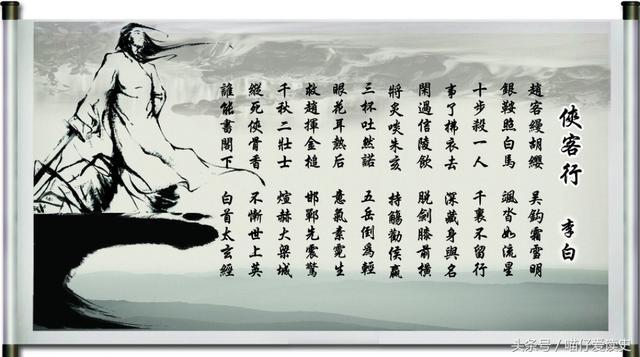 俠客行 李白
趙客縵胡纓 吳鈎霜雪明
銀鞍照白馬 颯沓如流星
十步殺一人 千裏不留行
事了拂衣去 深藏身與名
閑過信陵飲 脫劍膝前橫
將炙啖朱亥 持觴勸侯嬴
三杯吐然諾 五岳倒爲輕
眼花耳熱后 意氣素霓生
救趙揮金槌 邯鄲先震驚
千秋二壯士 煊赫大梁城
縱死俠骨香 不慚世上英
誰能書閣下 白首太玄經
头条号／喵仔爱读史